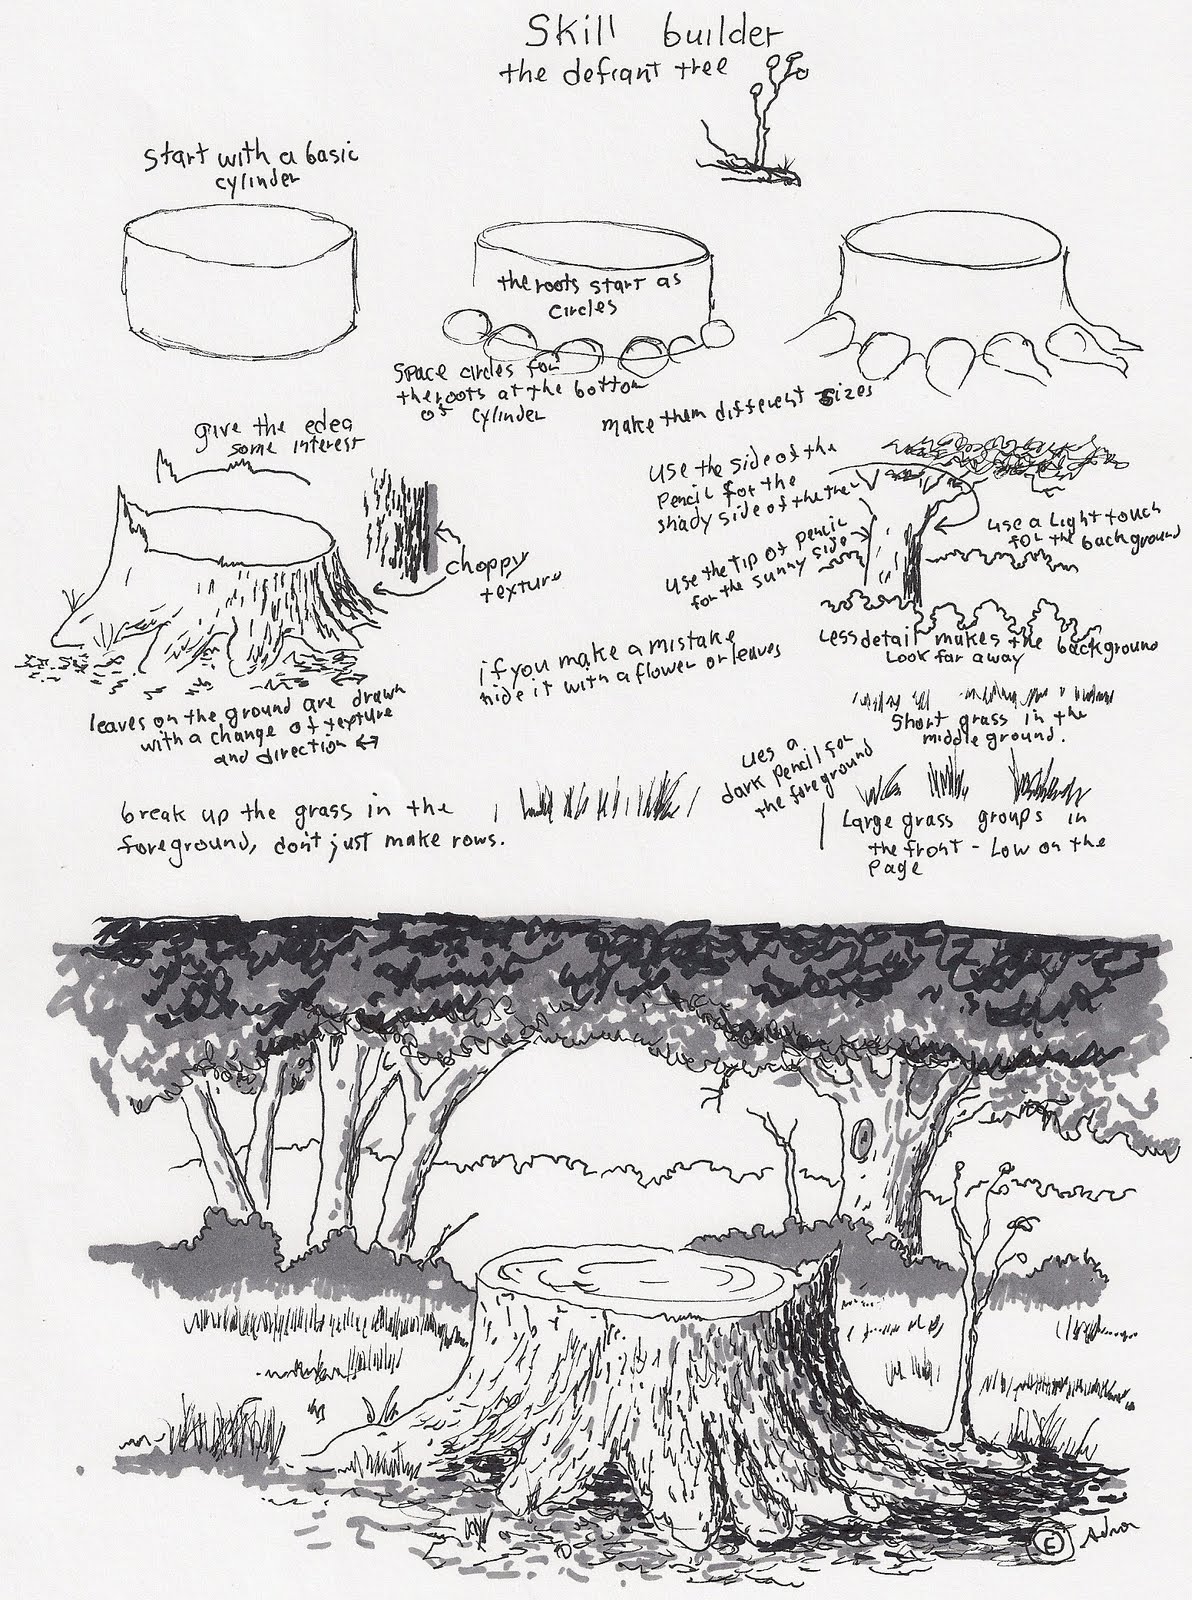 Skill builder
the defiant tree
Start with a basic
cylinder
the roots start as
circles
Space circles for
the roots at the bottom
of cylinder
make them different sizes
give the edea
some interest
choppy
texture
leaves on the ground are drawn
with a change of texture
and direction
use the side of the
pencil for the
shady side of the tree
use the tip of pencil
for the sunny side
use a light touch
for the background
Less detail makes the background
Look far away
if you make a mistake
hide it with a flower or leaves
Short grass in the
middle ground.
ues a
dark pencil for
the foreground
break up the grass in the
foreground, don't just make rows.
Large grass groups in
the front - Low on the
page
©